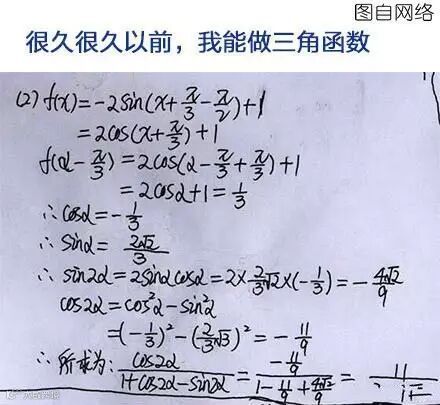 图自网络
很久很久以前，我能做三角函数
(2) f(x)=-2sin(x+π/3-π/2)+1
=2cos(x+π/3)+1
f(α-π/3)=2cos(α-π/3+π/3)+1
=2cosα+1=1/3
∴cosα=-1/3
∴sinα=2√2/3
∴sin2α=2sinαcosα=2×2/3√2×(-1/3)=-4√2/9
cos2α=cos²α-sin²α
=(-1/3)²-(2/3√3)²=-11/9
∴所求为:cos2α/1+cos2α-sin2α=-11/9/1-11/9+4√2/9=11/